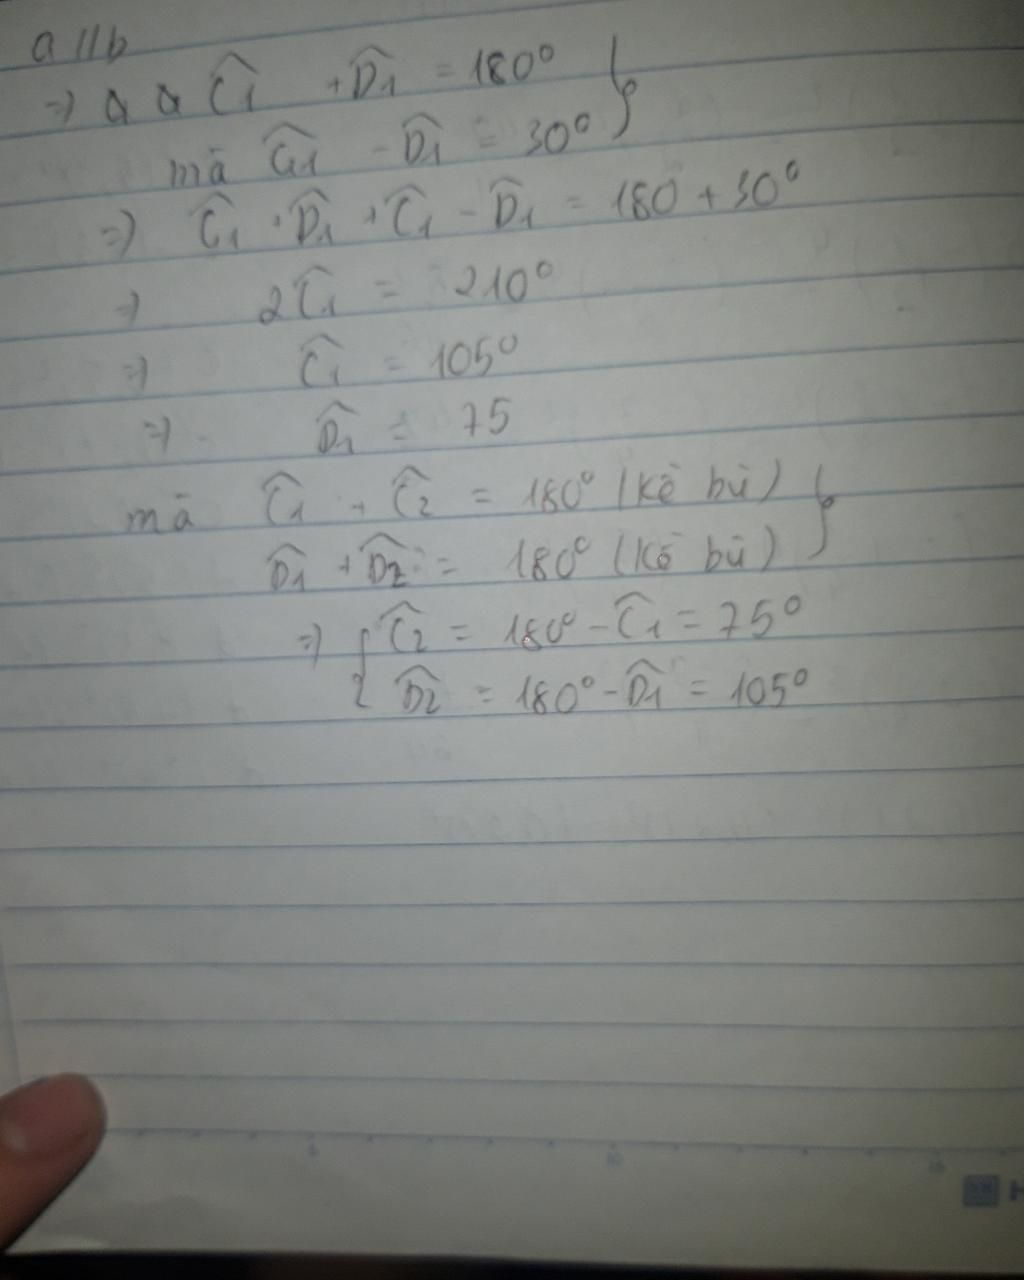 a // b
=> Ĉ1 + D̂1 = 180° }
mà Ĉ1 - D̂1 = 30°
=> Ĉ1 + D̂1 + Ĉ1 - D̂1 = 180 + 30°
=> 2Ĉ1 = 210°
=> Ĉ1 = 105°
=> D̂1 = 75
mà Ĉ1 + Ĉ2 = 180° (kề bù) }
D̂1 + D̂2 = 180° (kề bù)
=> { Ĉ2 = 180° - Ĉ1 = 75°
D̂2 = 180° - D̂1 = 105°